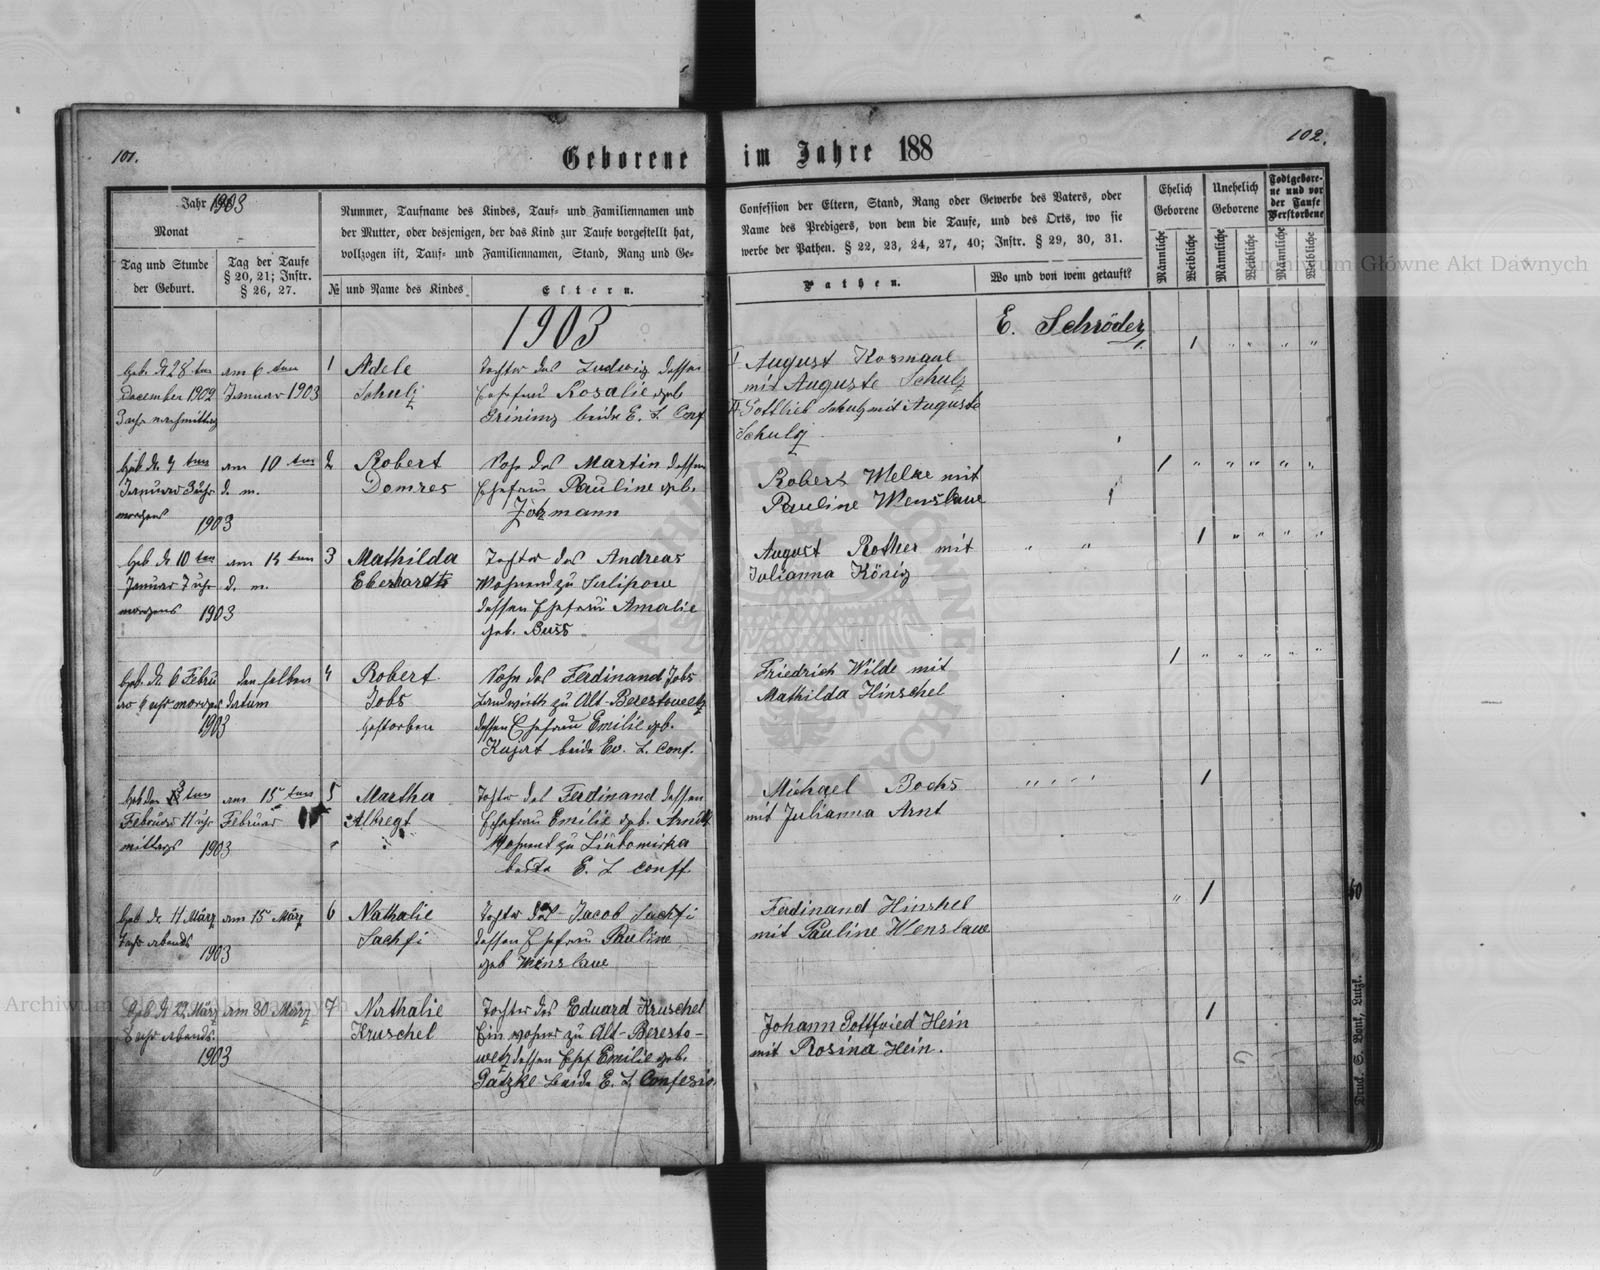 101.
Geborene im Jahre 188
102.
Jahr 1903
Monat
Tag und Stunde
der Geburt.
Tag der Taufe
§ 20, 21; Instr.
§ 26, 27.
Nummer, Taufname des Kindes, Tauf- und Familiennamen und
der Mutter, oder desjenigen, der das Kind zur Taufe vorgestellt hat,
vollzogen ist, Tauf- und Familiennamen, Stand, Rang und Ge-
№ und Name des Kindes
Eltern.
Confession der Eltern, Stand, Rang oder Gewerbe des Vaters, oder
Name des Predigers, von dem die Taufe, und des Orts, wo sie
werbe der Pathen. § 22, 23, 24, 27, 40; Instr. § 29, 30, 31.
Pathen.
Wo und von wem getauft?
Ehelich
Geborene
Unehelich
Geborene
Todtgebore-
ne und vor
der Taufe
Verstorbene
Männliche
Weibliche
Männliche
Weibliche
Männliche
Weibliche
1903
E. Schröder
Geb. d. 28 ten
December 1902
3 uhr nachmittag
am 6 ten
Januar 1903
1 Adele
Schulz
Tochter des Ludwig dessen
Ehefrau Rosalie geb.
beide E. L. Conf
I August Kosmaul
mit Auguste Schulz
II Gottlieb Schulz mit Auguste
Schulz
1 " " " "
Geb. d. 7 ten
Januar 3 uhr
morgens 1903
am 10 ten
d. m.
2 Robert
Domres
Sohn des Martin dessen
Ehefrau Pauline geb.
Robert Melke mit
Pauline Wenslaue
1 " " " " "
Geb. d. 10 ten
Januar 7 uhr
morgens 1903
am 15 ten
d. m.
3 Mathilda
Eberhardt
Tochter des Andreas
Wohnend zu
dessen Ehefrau Amalie
geb. Buss
August Rother mit
Julianna König
" "
1 " " " "
Geb. d. 6 Febru
ar 6 uhr morges
1903
den selben
datum
4 Robert
Jobs
Gestorben
Sohn des Ferdinand Jobs
Landwirth zu Alt-Berestowetz
dessen Ehefrau Emilie geb.
Kujat beide Ev. L. Conf.
Friedrich Wilde mit
Mathilda Hinschel
1 " " " " "
Geb den ten
Februar 11 uhr
mittags 1903
am 15 ten
Februar
5 Martha
Albregt
Tochter des Ferdinand dessen
Ehefrau Emilie geb. Arndt
Wohnent zu Liubomirka
beide E. L conff
Michael Bochs
mit Julianna Arnt
" " " "
1
Geb d. 11 März
uhr abends
1903
am 15 März
6 Nathalie
Sachsi
Tochter des Jacob Sachsi
dessen Ehefrau Pauline
geb Wenslaue
Ferdinand Hinshel
mit Pauline Wenslaue
" 1
Geb d. 22 März
8 uhr abends.
1903
am 30 März
7 Nathalie
Kruschel
Tochter des Eduard Kruschel
Einwohner zu Alt-Beresto-
wetz dessen Ehef Emilie geb.
Patzke beide E. L Confesio
Johann Gottfried Hein
mit Rosina Hein.
1
50
Druck. S. Bonk, Lutzk.
Archiwum Główne Akt Dawnych
Archiwum Główne Akt Dawnych
ARCHIWUM GŁÓWNE AKT DAWNYCH